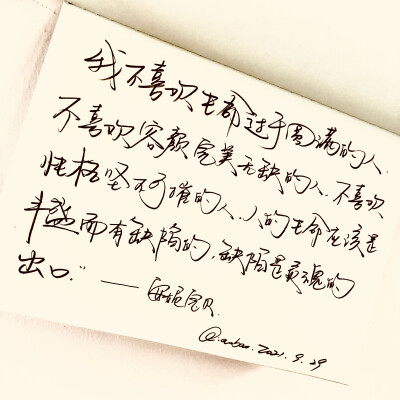 我不喜欢生命过于圆满的人.
不喜欢容颜完美无缺的人.不喜欢
性格坚不可摧的人.人的生命应该是
丰盛而有缺陷的,缺陷是灵魂的
出口."——安妮宝贝.
2021.9.29